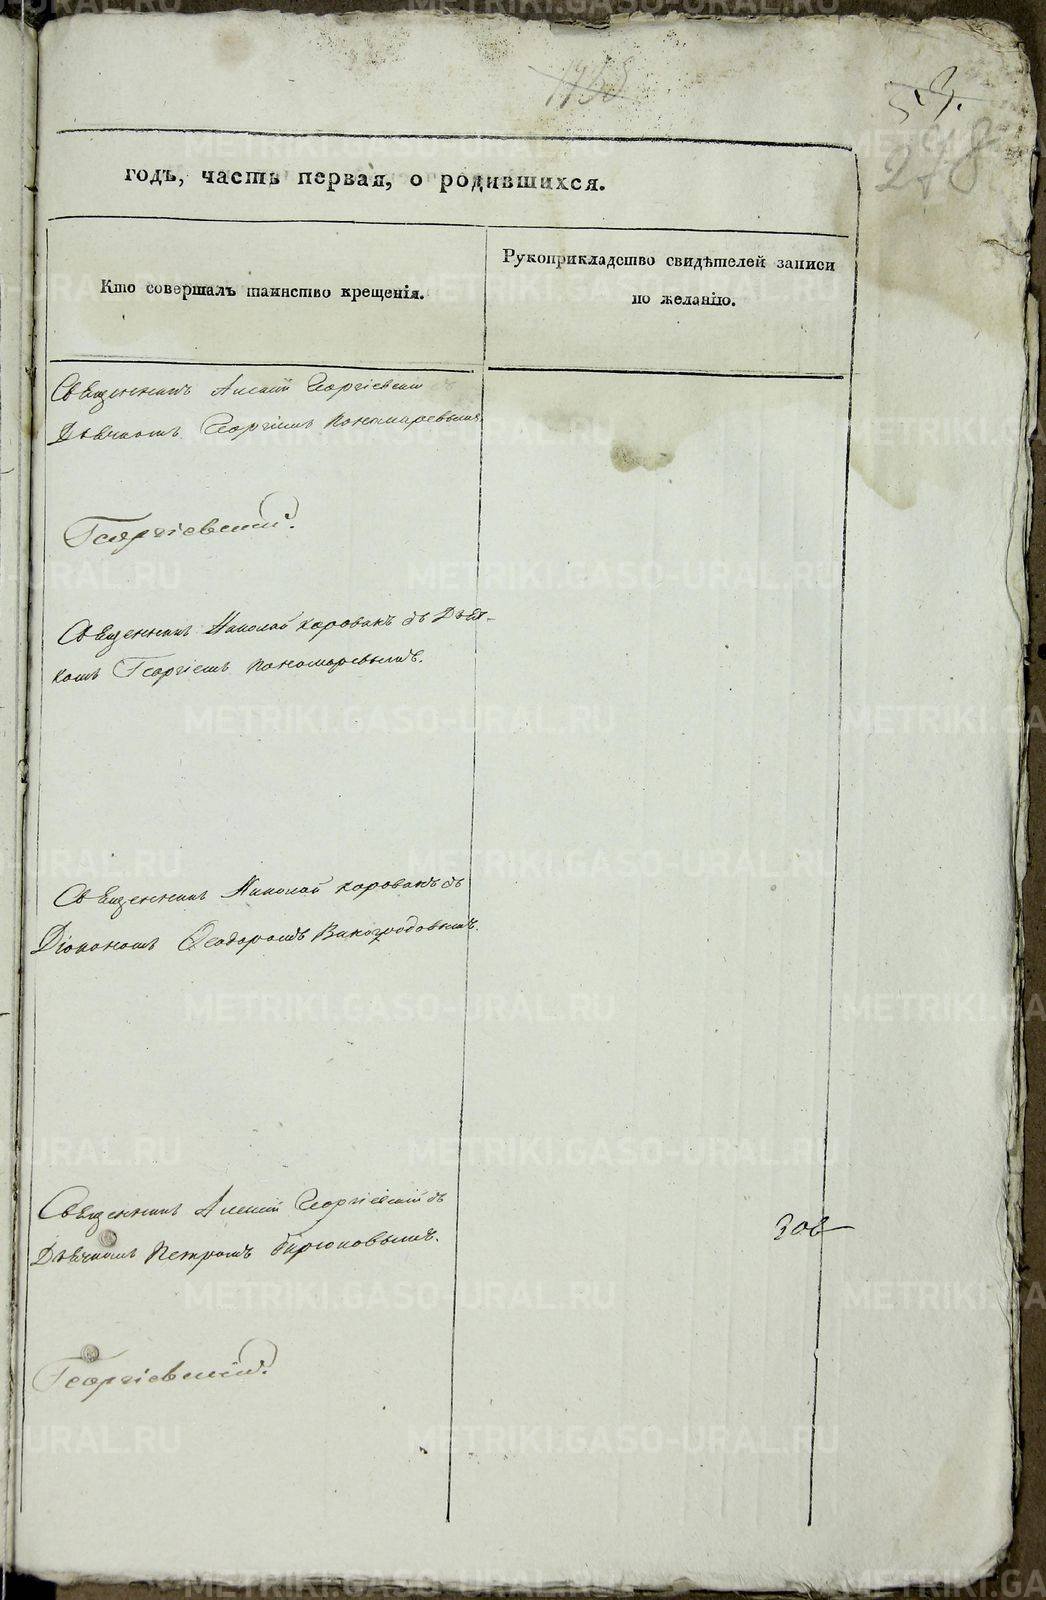 278
годъ, часть первая, о родившихся.
Кто совершалъ таинство крещенія.
Рукоприкладство свидѣтелей записи
по желанію.
Священникъ Алексій Георгіевскій съ
Дьячкомъ Георгіемъ Пономаревымъ.
Георгіевскій.
Священникъ Николай Коровинъ съ Дья-
комъ Георгіемъ Пономаревымъ.
Священникъ Николай Коровинъ съ
Діакономъ Ѳеодоромъ Виноградовымъ.
Священникъ Алексій Георгіевскій съ
Дьячкомъ Петромъ Бирюковымъ.
308
Георгіевскій.
METRIKI.GASO-URAL.RU